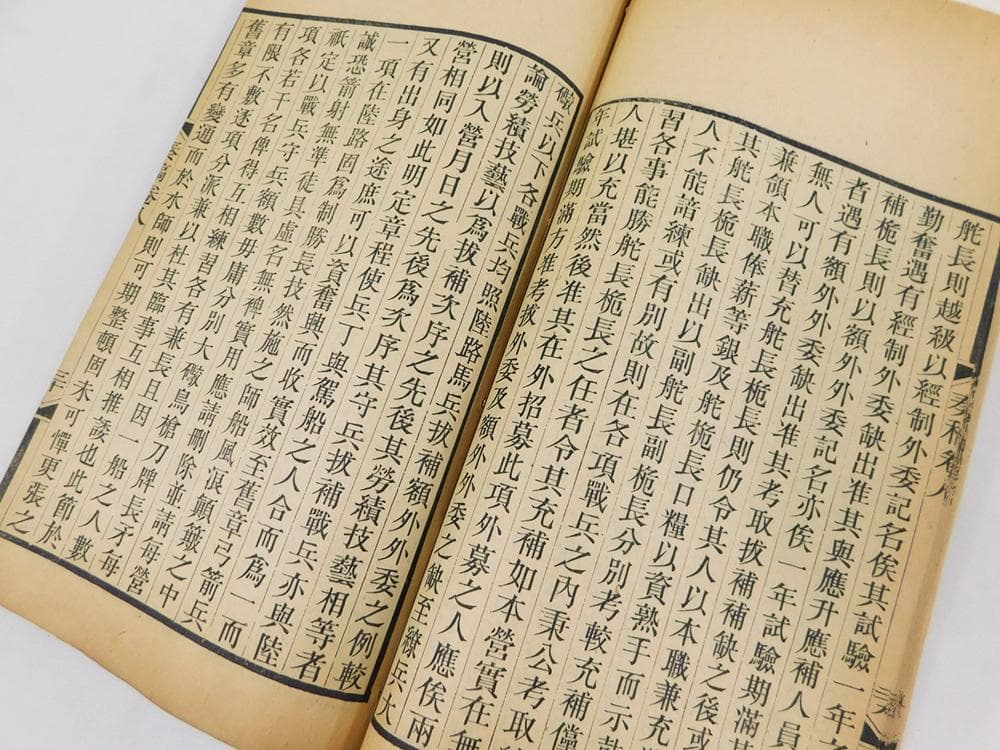 舵長則越級以經制外委記名俟其試驗一年
勤奮遇有經制外委缺出准其與應升應補人員
補桅長則以額外外委記名亦俟一年試驗期滿其
者遇有額外外委缺出准其考取拔補補缺之後或
無人可以替充舵長桅長則仍令其人以本職兼充
兼領本職俸薪等銀及舵桅長口糧以資熟手而示
其舵長桅長缺出以副舵長副桅長分別考較充補儻
人不能諳練或有別故則在各項戰兵之內秉公考取
習各事能勝舵長桅長之任者令其充補如本營實在無
人堪以充當然後准其在外招募此項外募之人應俟兩
年試驗期滿方准考拔外委及額外外委之缺至繚兵大
礮兵以下各戰兵均照陸路馬兵拔補額外外委之例較
論勞績技藝以為拔補次序之先後其勞績技藝相等者
則以入營月日之先後為次序其守兵拔補戰兵亦與陸
營相同如此明定章程使兵丁與駕船之人合而為一而
又有出身之途庶可以資奮興而收實效至舊章弓箭兵
一項在陸路固為制勝長技然施之師船風浪顛簸之中
誠恐箭射無準徒具虛名無裨實用應請刪除並請每營
祇定以戰兵守兵額數毋庸分別大礮鳥槍刀牌長矛每
項各若干名俾得互相練習各有兼長且因一船之人數
有限不敷逐項分派兼以杜其臨事互相推諉也此節於
舊章多有變通而於水師則可期整頓固未可憚更張之